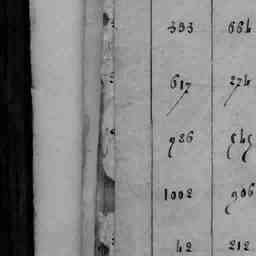 353 664
617 274
926 545
1002 906
42 212